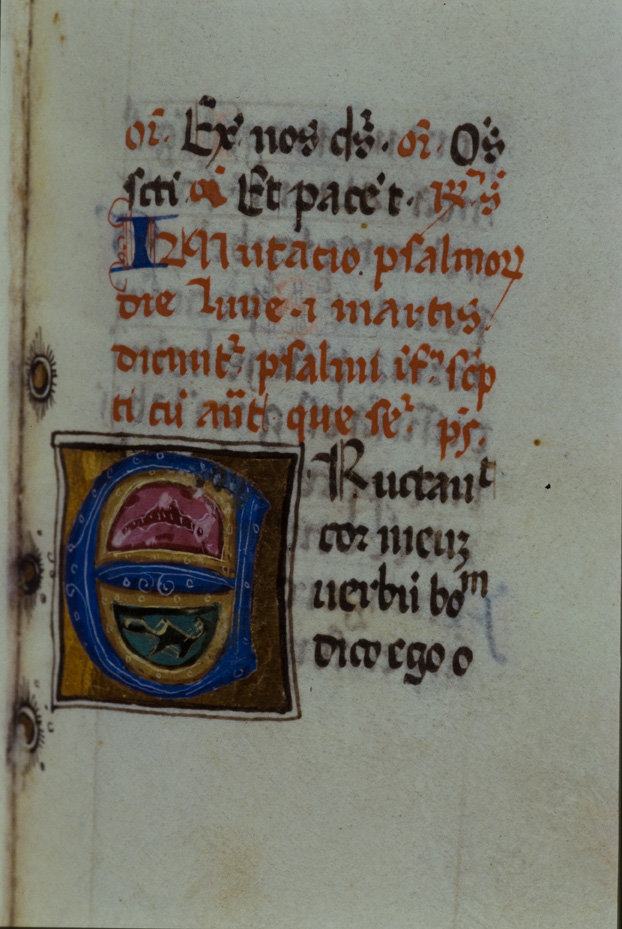 or̄. Ex nos ds̄. or̄. Os̄
scti or̄ Et pace t. R̄.s̄
In mutacio psalmoꝝ
die lune. i martis.
dicunt᷑ psalmi if᷑. scͥp
ti cū an̄t que se᷑. ps̄.
ERuctauᵗ
cor meuȝ
uerbū boᵐ
dico ego o